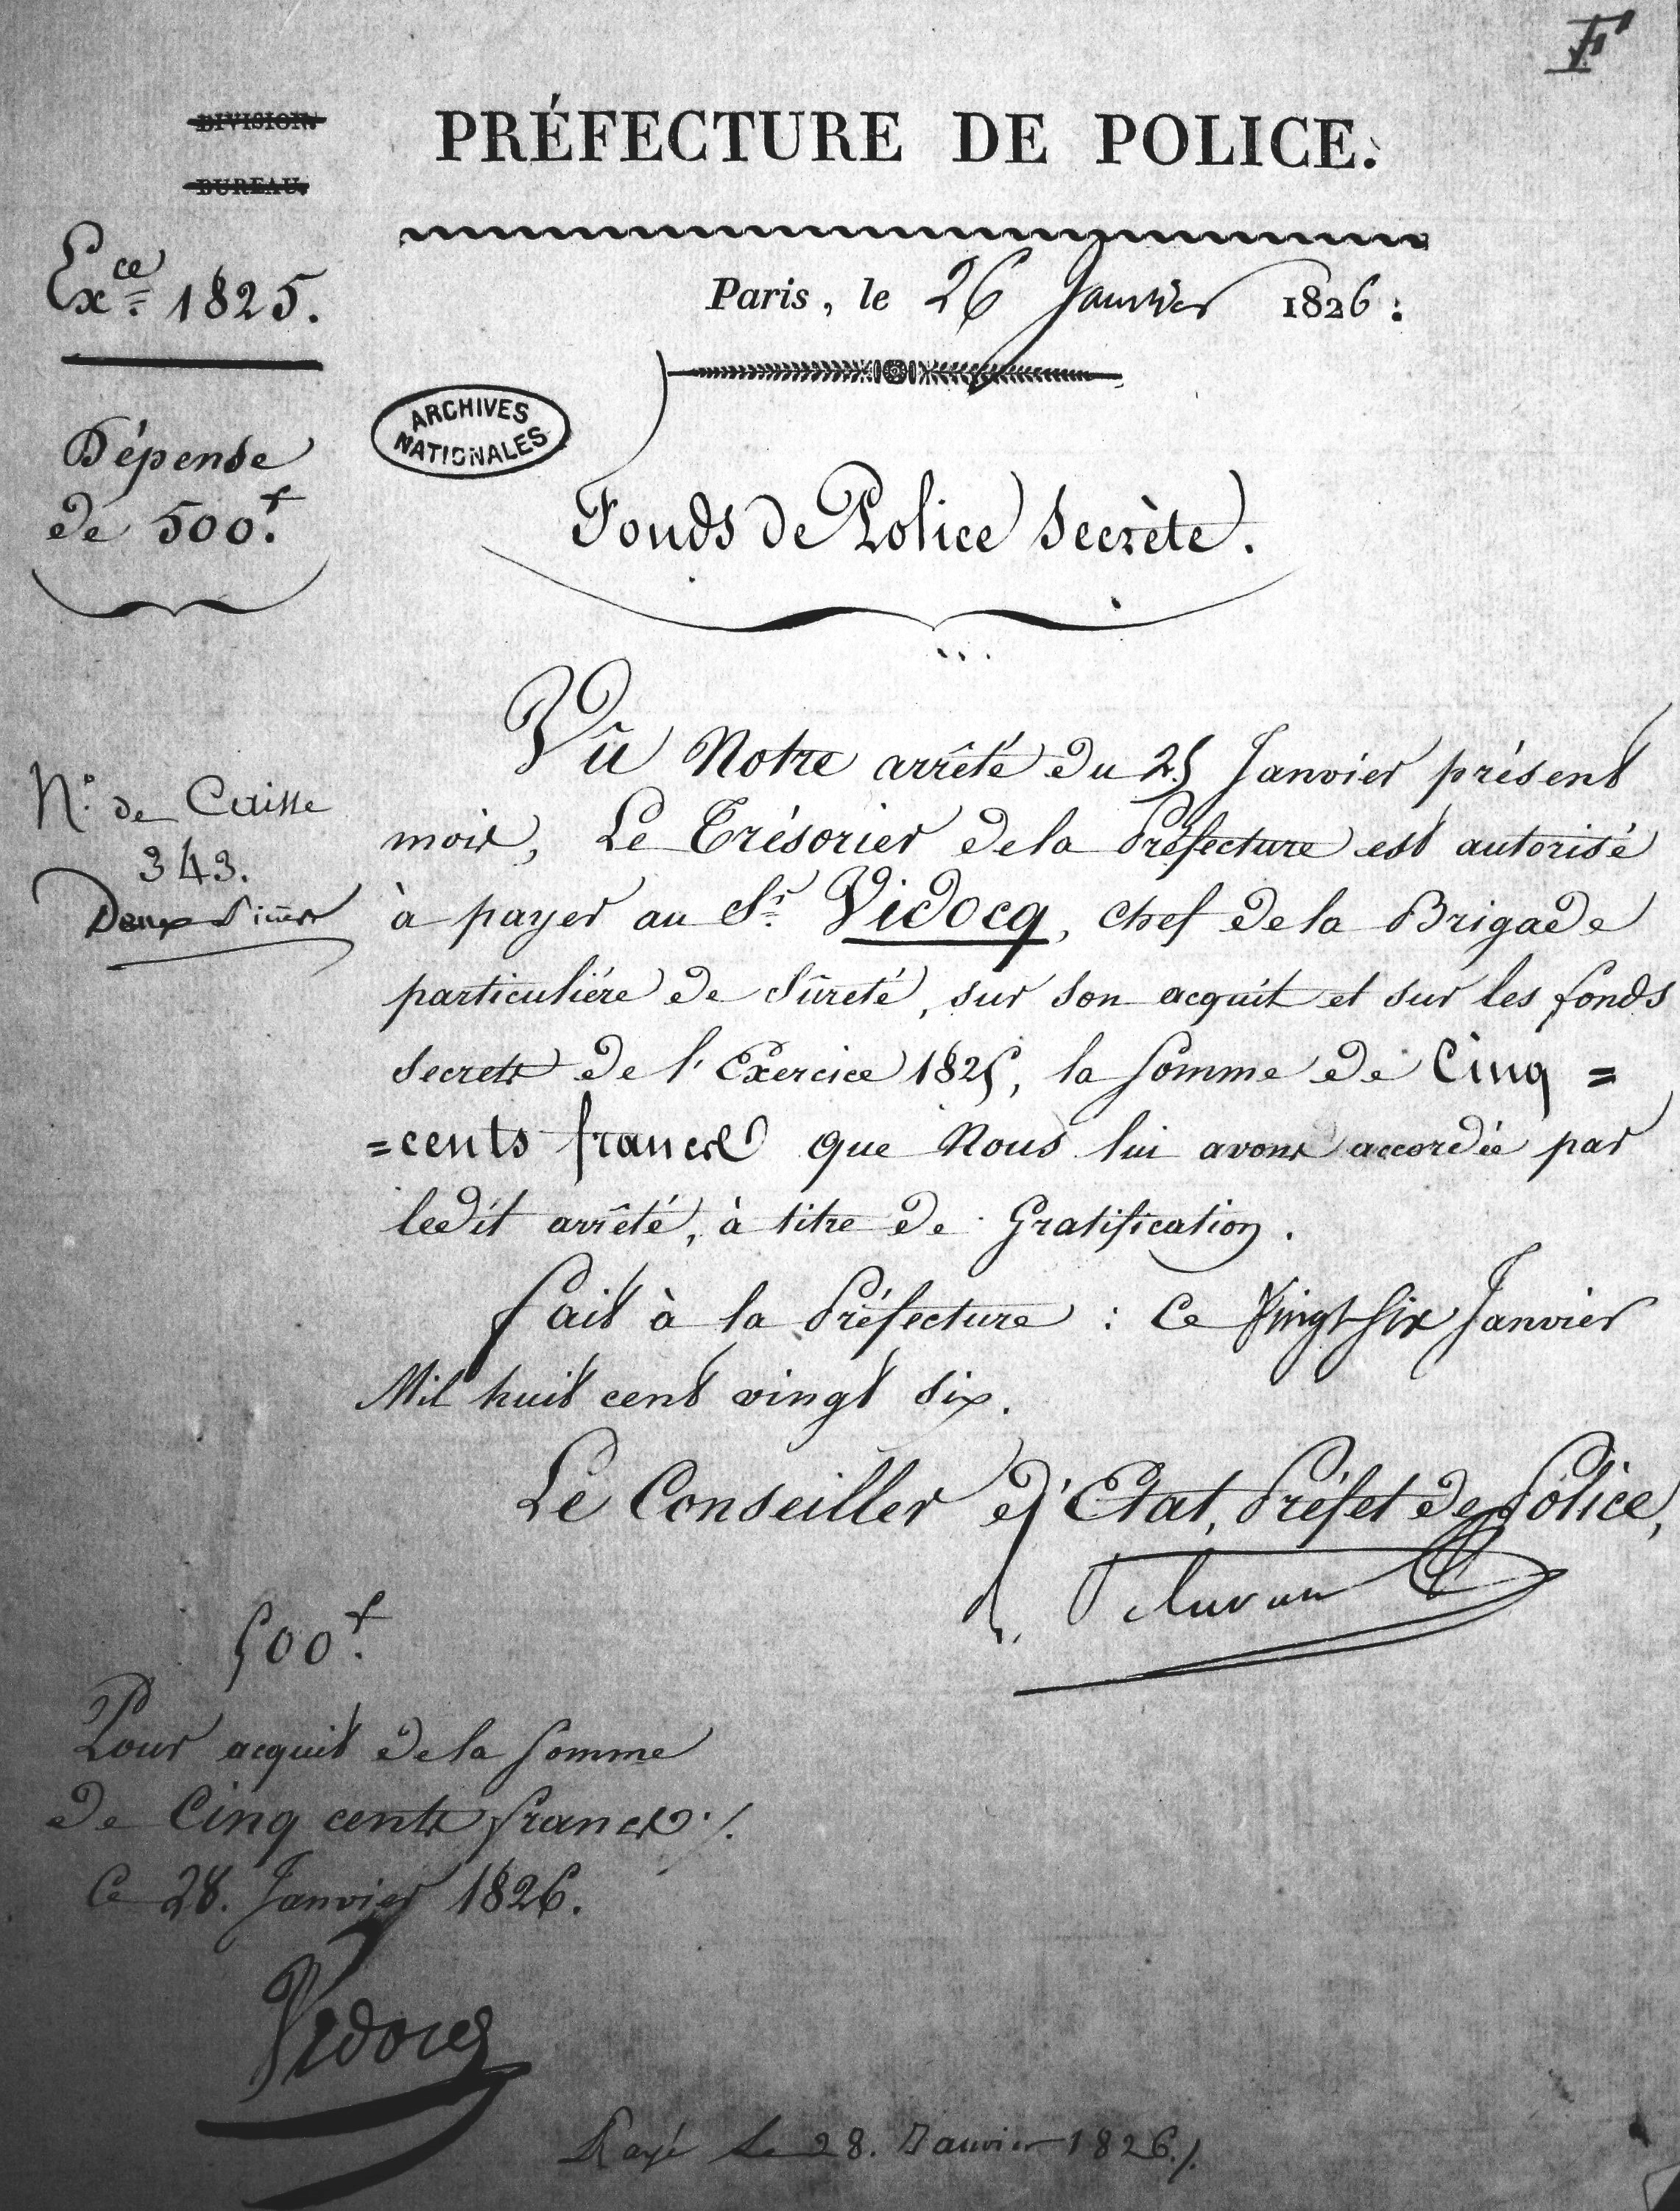 F
DIVISION.
BUREAU.
PRÉFECTURE DE POLICE.
Exce 1825.
Paris, le 26 Janvier 1826.
ARCHIVES
NATIONALES
Dépense
de 500f.
Fonds de Police Secrète.
Vû Notre arrêté du 25 Janvier présent
mois, Le Trésorier de la Préfecture est autorisé
à payer au Sr. Vidocq, chef de la Brigade
particuliére de Sûreté, sur son acquit et sur les fonds
Secrets de l'Exercice 1825, la Somme de Cinq =
=cents francs que Nous lui avons accordée par
ledit arrêté, à titre de Gratification.
N.° de Caisse
343.
Deux
Fait à la Préfecture : Ce Vingt Six Janvier
Mil huit cent vingt six.
Le Conseiller d'Etat, Préfet de Police,
500f.
Pour acquit de la Somme
de Cinq cents francs ./.
Ce 28. Janvier 1826.
Vidocq
Payé Le 28. Janvier 1826./.